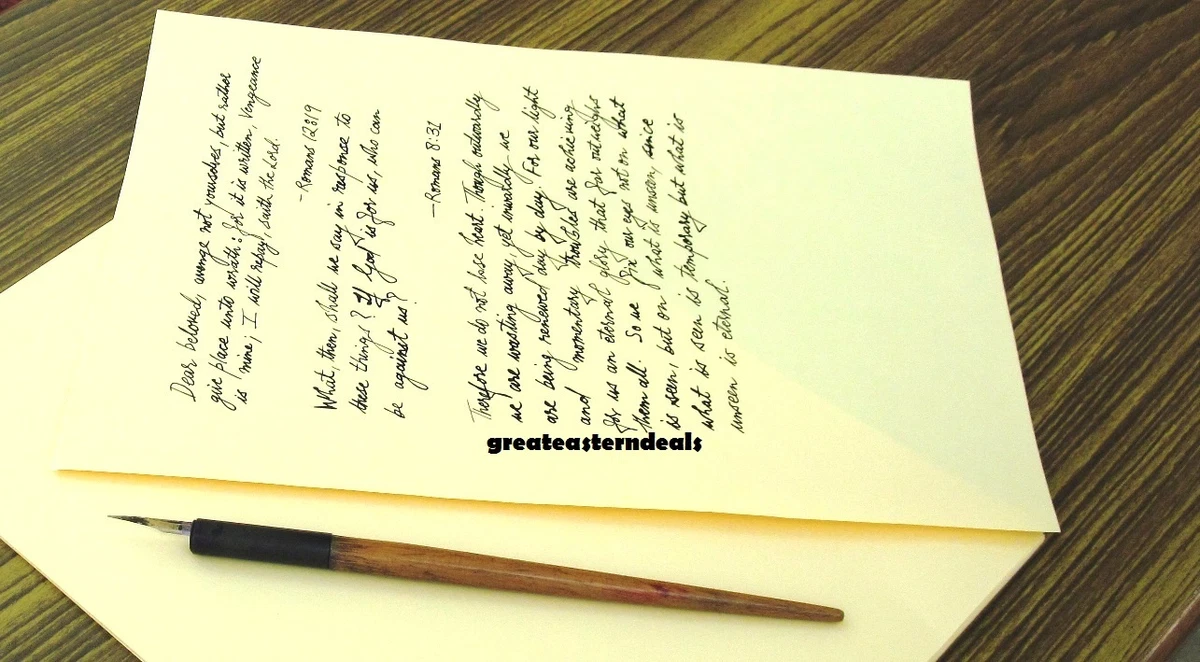 Dear beloved, avenge not yourselves, but rather
give place unto wrath: for it is written, Vengeance
is mine; I will repay, saith the Lord.
- Romans 12:19
What, then, shall we say in response to
these things? If God is for us, who can
be against us?
- Romans 8:31
Therefore we do not lose heart. Though outwardly
we are wasting away, yet inwardly we
are being renewed day by day. For our light
and momentary troubles are achieving
for us an eternal glory that far outweighs
them all. So we fix our eyes not on what
is seen, but on what is unseen, since
what is seen is temporary but what is
unseen is eternal.
greateasterndeals